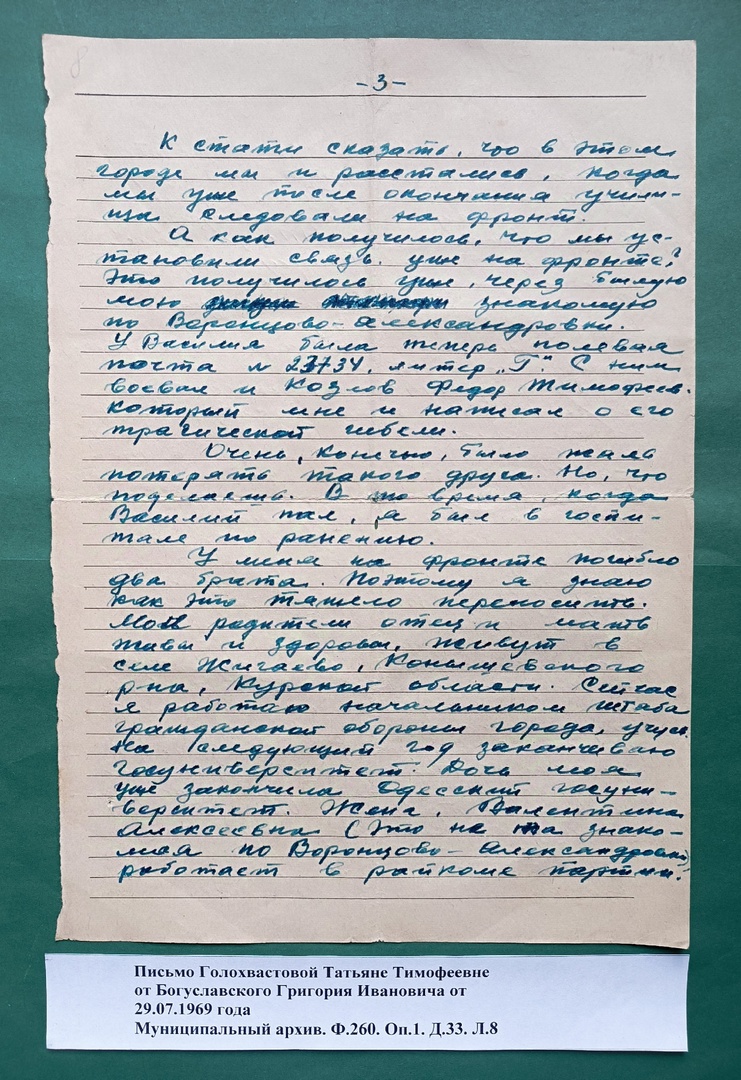 8
-3-
К стати сказать, что в этом
городе мы и расстались, когда
мы уже после окончания учили-
ща следовали на фронт.
А как получилось, что мы ус-
тановили связь уже на фронте?
Это получилось уже, через бывшую
мою знакомую
по Воронцово-Александровки.
У Василия была теперь полевая
почта № 23734, литер „Г". С ним
воевал и Козлов Федор Тимофеев.
который мне и написал о его
трагической гибели.
Очень, конечно, было жаль
потерять такого друга. Но, что
поделаешь. В то время, когда
Василий пал, я был в госпи-
тале по ранению.
У меня на фронте погибло
два брата. Поэтому я знаю
как это тяжело переносить.
Мои родители отец и мать
живы и здоровы, живут в
селе Жигаево, Конышевского
р-на, Курской области. Сейчас
я работаю начальником штаба
гражданской обороны города, учусь.
На следующий год заканчиваю
госуниверситет. Дочь моя
уже закончила Одесский госуни-
верситет. Жена, Валентина
Алексеевна (Это не та знако-
мая по Воронцово-Александровки)
работает в райкоме партии.
Письмо Голохвастовой Татьяне Тимофеевне
от Богуславского Григория Ивановича от
29.07.1969 года
Муниципальный архив. Ф.260. Оп.1. Д.33. Л.8